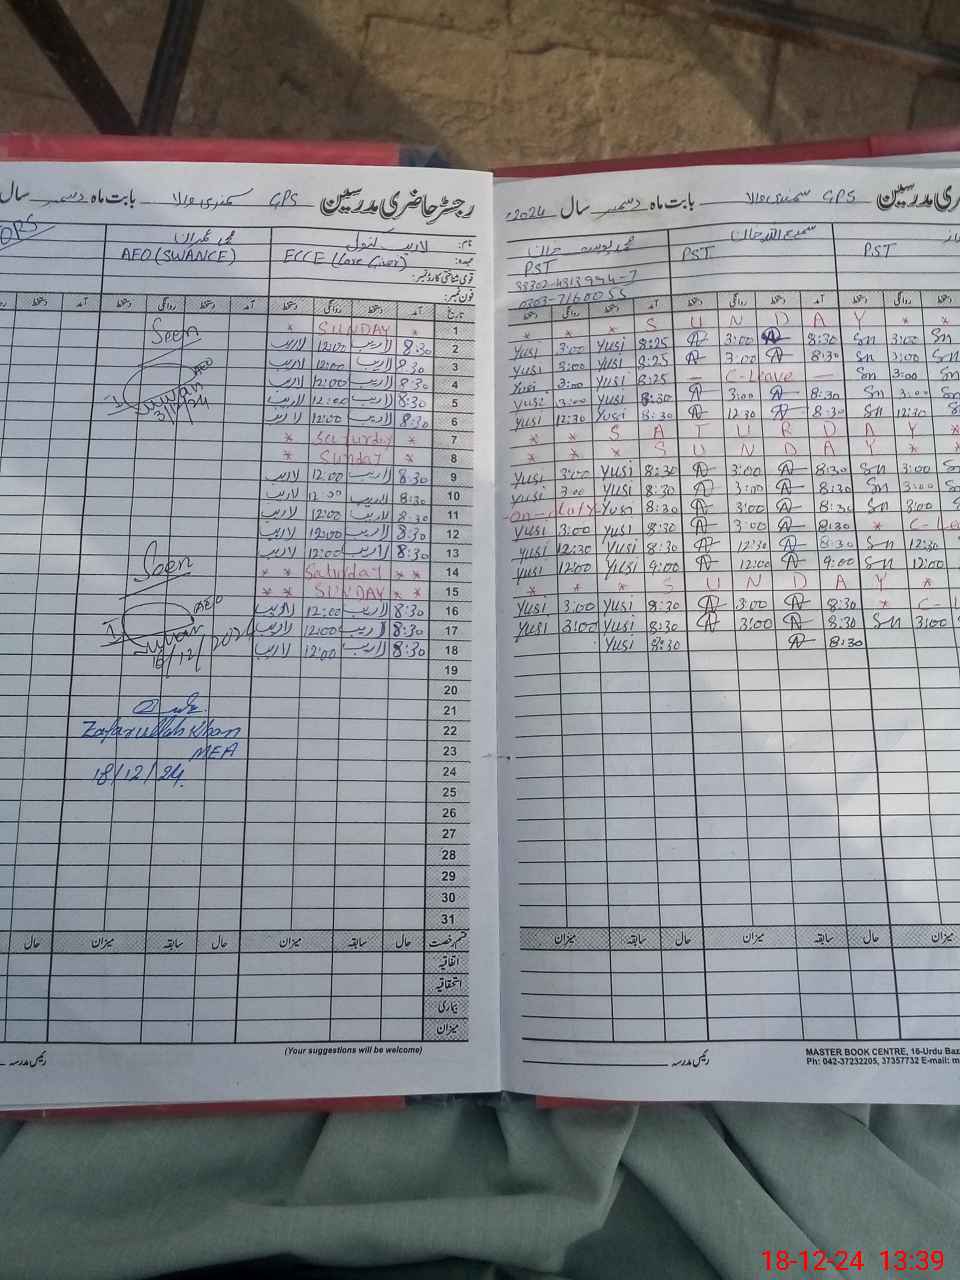 رجسٹر حاضری مدرسین GPS سمندری والا بابت ماہ دسمبر سال
محمد عمران
AEO (SWANCE)
نام: لاریب کنول
عہدہ: ECCE (Care Giver)
قومی شناختی کارڈ نمبر:
فون نمبر:
تاریخ آمد دستخط روانگی دستخط آمد دستخط روانگی دستخط آمد
1 * SUNDAY *
2 8:30 لاریب 12:00 لاریب
3 8:30 لاریب 12:00 لاریب
4 8:30 لاریب 12:00 لاریب
5 8:30 لاریب 12:00 لاریب
6 8:30 لاریب 12:00 لاریب
7 * Saturday *
8 * Sunday *
9 8:30 لاریب 12:00 لاریب
10 8:30 لاریب 12:00 لاریب
11 8:30 لاریب 12:00 لاریب
12 8:30 لاریب 12:00 لاریب
13 8:30 لاریب 12:00 لاریب
14 * * Saturday * *
15 * * SUNDAY * *
16 8:30 لاریب 12:00 لاریب
17 8:30 لاریب 12:00 لاریب
18 8:30 لاریب 12:00 لاریب
19
20
21
22
23
24
25
26
27
28
29
30
31
Seen
AEO
3/12/24
Seen
AEO
16/12/2024
Zafarullah Khan
MEA
18/12/24
قسم رخصت حال سابقہ میزان حال سابقہ میزان حال
اتفاقیہ
استحقاقیہ
بیماری
میزان
(Your suggestions will be welcome)
رئیس مدرسہ
GPS سمندری والا بابت ماہ دسمبر سال 2024
PST
سمیع اللہ خان
PST
محمد یوسف خان
PST
38302-4313994-7
0303-7160055
دستخط روانگی دستخط آمد دستخط روانگی دستخط آمد دستخط روانگی
* * * S U N D A Y * *
Yusi 3:00 Yusi 8:25 3:00 8:30 Sn 3:00 Sn
Yusi 3:00 Yusi 8:25 3:00 8:30 Sn 3:00 Sn
Yusi 3:00 Yusi 8:25 — C-Leave — Sn 3:00 Sn
Yusi 3:00 Yusi 8:30 3:00 8:30 Sn 3:00
Yusi 12:30 Yusi 8:30 12:30 8:30 Sn 12:30
* * * S A T U R D A Y *
* * * S U N D A Y * *
Yusi 3:00 Yusi 8:30 3:00 8:30 Sn 3:00
Yusi 3:00 Yusi 8:30 3:00 8:30 Sn 3:00
-on-duty- Yusi 8:30 3:00 8:30 Sn 3:00
Yusi 3:00 Yusi 8:30 3:00 8:30 * C-Lea
Yusi 12:30 Yusi 8:30 12:30 8:30 Sn 12:30
Yusi 12:00 Yusi 9:00 12:00 9:00 Sn 12:00
* * * S U N D A Y *
Yusi 3:00 Yusi 8:30 3:00 8:30 * C-L
Yusi 3:00 Yusi 8:30 3:00 8:30 Sn 3:00
Yusi 8:30 8:30
میزان سابقہ حال میزان سابقہ حال میزان
رئیس مدرسہ
MASTER BOOK CENTRE, 16-Urdu Baz
Ph: 042-37232205, 37357732 E-mail: m
18-12-24 13:39